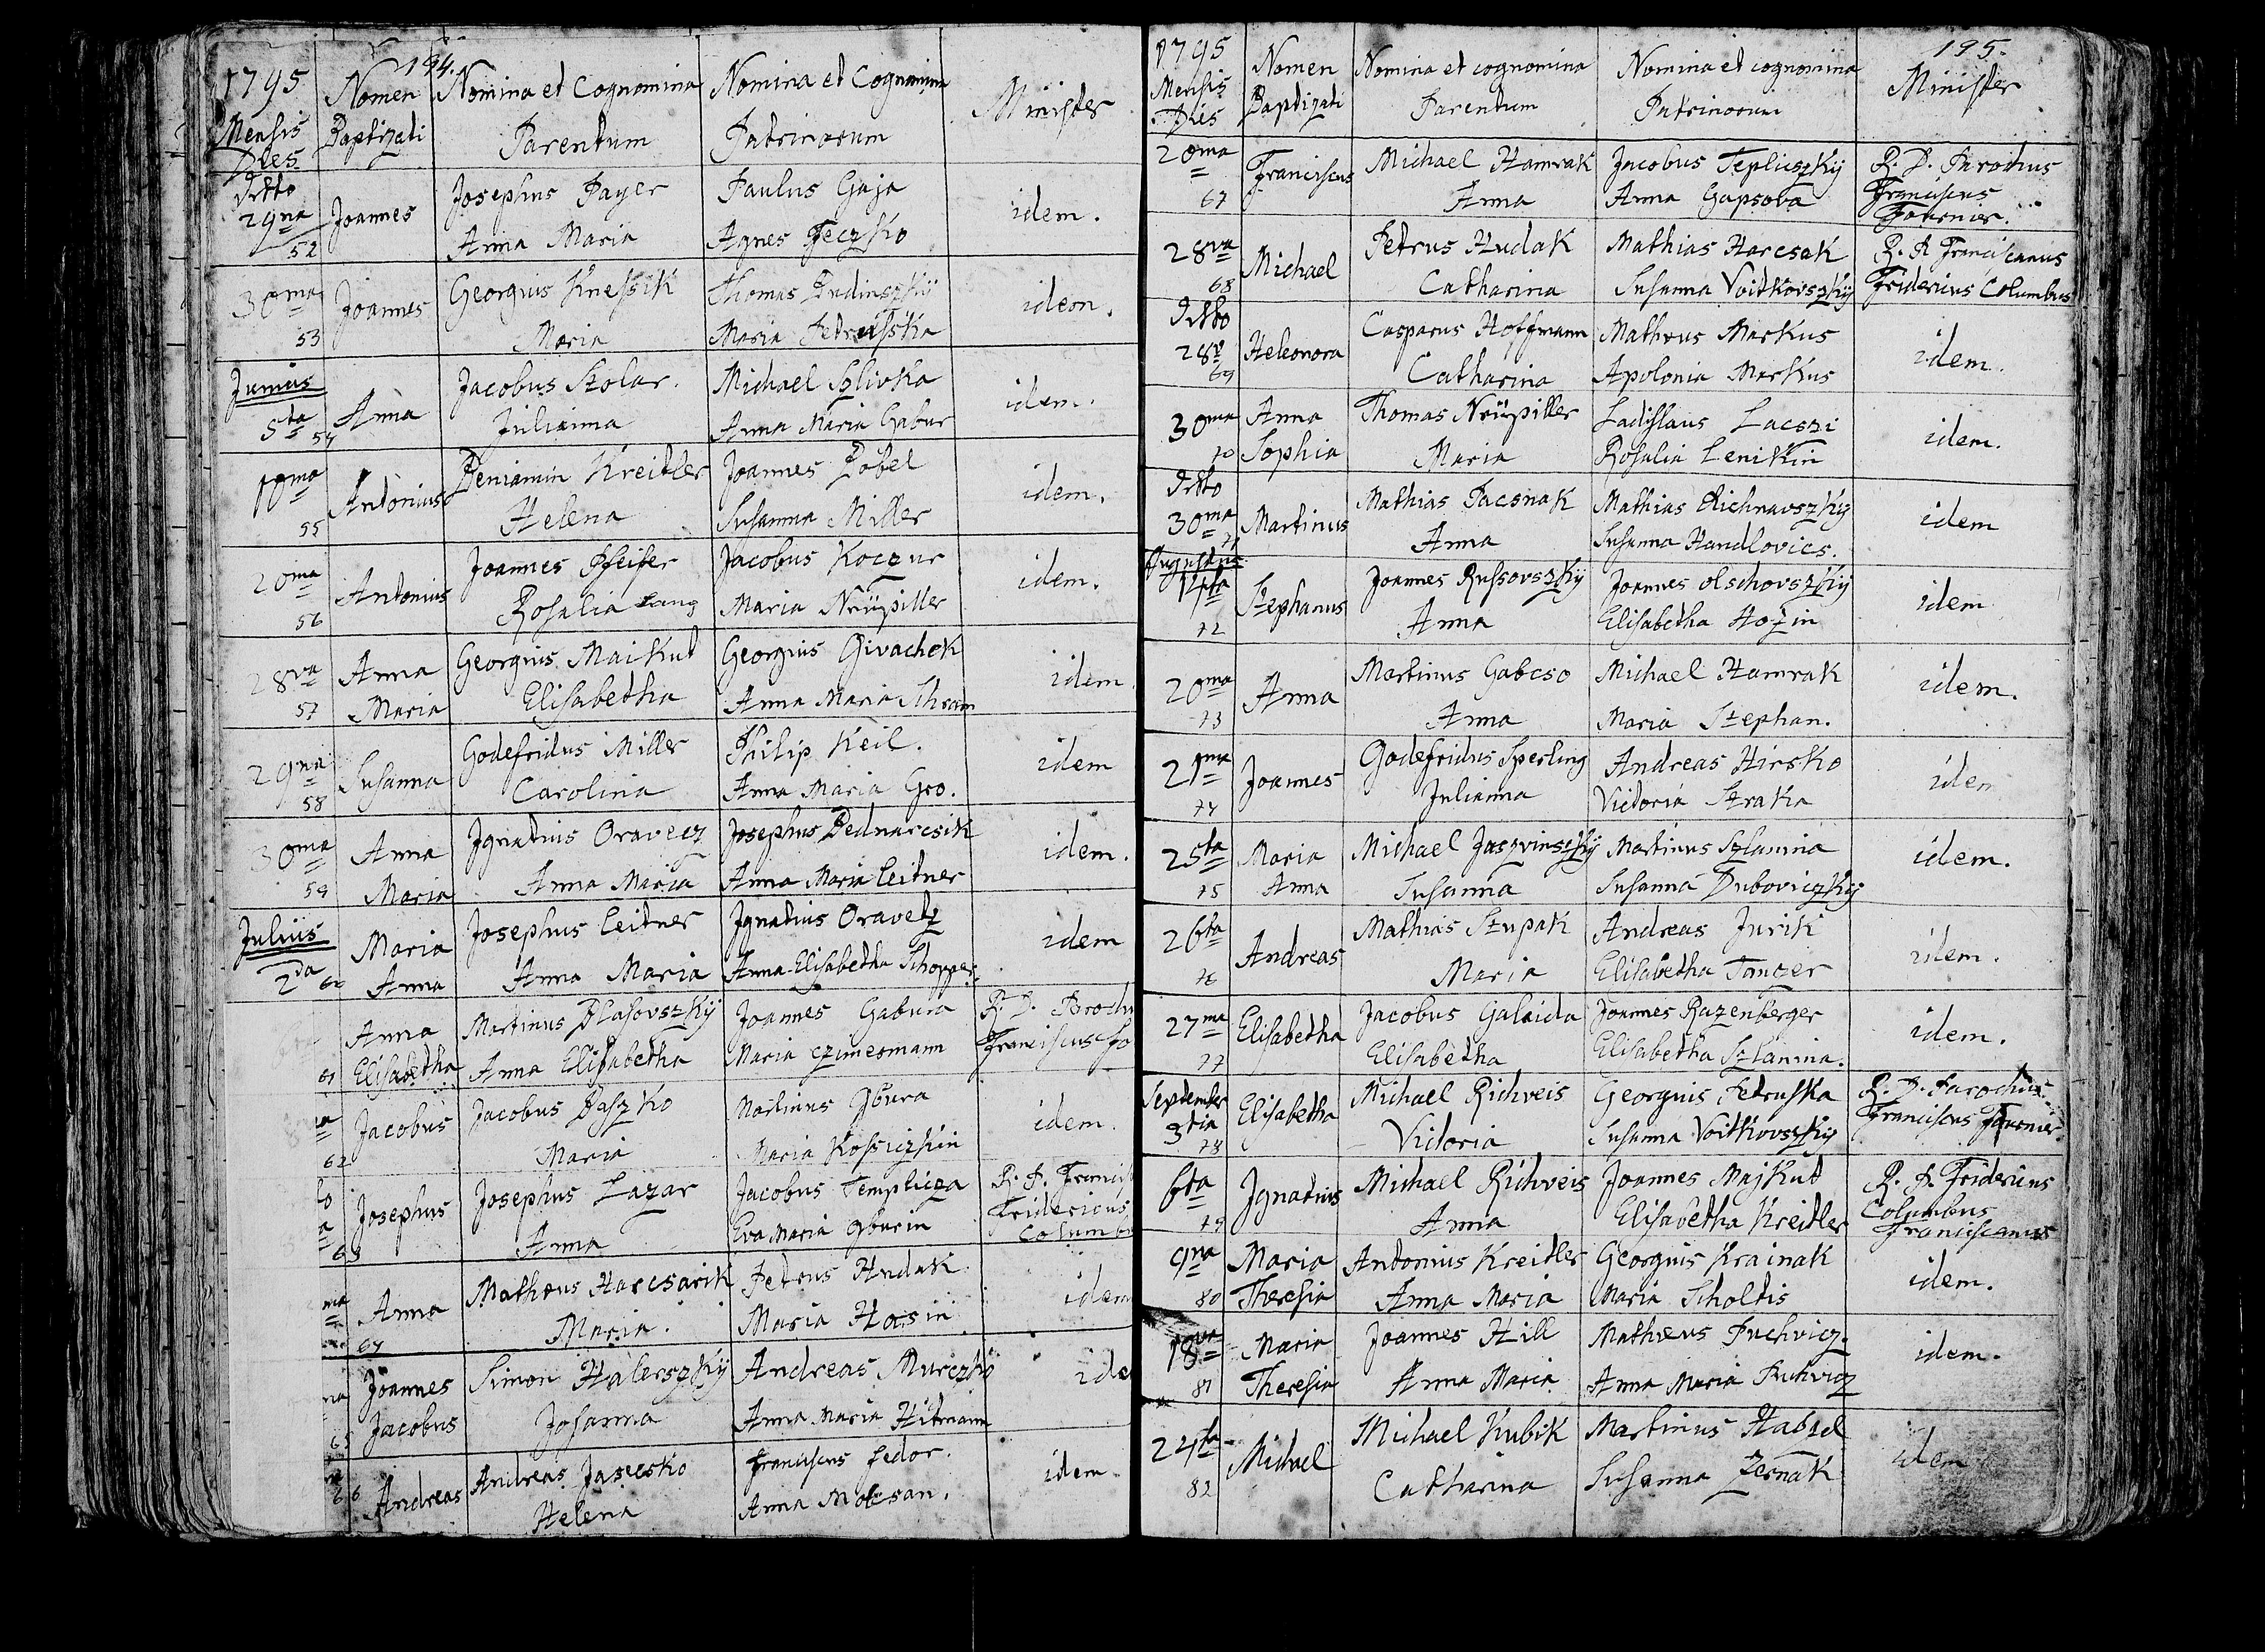 194.
1795 Nomen Nomina et Cognomina Nomina et Cognomina Minister
Mensis Baptizati Parentum Patrinorum
Dies
Ditto
29na Joannes Josephus Payer Paulus Gaja idem.
52 Anna Maria Agnes Peczko
30ma Joannes Georgius Knessik Thomas Dudinszky idem.
53 Maria Maria Petrusska
Junius
5ta 54 Anna Jacobus Stolar. Michael Szlivka idem.
Julianna Anna Maria Gabur
18ma Antonius Beniamin Kreitler Joannes Pobel idem.
55 Helena Susanna Miller
20ma Antonius Joannes Pfeifer Jacobus Koczur idem.
56 Rosalia Lang Maria Neüpiller
28va Anna Georgius Maikut Georgius Givachek idem
57 Maria Elisabetha Anna Maria Schram
29na Susanna Godefridus Miller Philip Keil. idem
58 Carolina Anna Maria Gro.
30ma Anna Ignatius Oravecz Josephus Bednarcsik idem.
59 Maria Anna Maria Anna Maria Leitner
Julius Maria Josephus Leitner Ignatius Oravetz idem
2da 60 Anna Anna Maria Anna Elisabetha Schopper.
Anna Martinus Blasovszky Joannes Gabura R. D. Paroch
61 Elisabetha Anna Elisabetha Maria Czimermann Franciscus Fo
62 Jacobus Jacobus Paszko Martinus Gbura idem.
Maria Maria Kossiczkin
Josephus Josephus Lazar Jacobus Templicza R. P. Francis
63 Anna Eva Maria Gburin Fridericus
Columb
Anna Matheus Harcsarik Petrus Hudak idem
64 Maria. Maria Hosin
Joannes Simon Halerszky Andreas Murczko ide
65 Jacobus Josanna Anna Maria Hitmann
66 Andreas Andreas Jasecsko Franciscus Fedor. idem.
Helena Anna Motsan.
195.
1795 Nomen Nomina et cognomina Nomina et cognomina Minister
Mensis Baptizati Parentum Patrinorum
Dies
20ma Franciscus Michael Hamrak Jacobus Tepliczky R. D. Parochus
67 Anna Anna Gapsova Franciscus
Fournier.
28va Michael Petrus Hudak Mathias Harcsak R. P. Franciscanus
68 Catharina Susanna Voitkovszky Fridericus Columbus
Ditto
28va Heleonora Casparus Hoffmann Matheus Markus idem.
69 Catharina Apolonia Markus
30ma Anna Thomas Neüpiller Ladislaus Lacszi idem.
70 Sophia Maria Rosalia Lenikin
Ditto
30ma Martinus Mathias Pacsnak Mathias Richnavszky idem
71 Anna Susanna Handlovics.
Augustus
Stephanus Joannes Russovszky Joannes Olschovszky idem
72 Anna Elisabetha Hozin
20ma Anna Martinus Gabcso Michael Hamrak idem.
73 Anna Maria Stephan.
21ma Joannes Godefridus Sperling Andreas Hirsko idem
74 Julianna Victoria Straka
25ta Maria Michael Jaszvinszky Martinus Szlanina idem.
75 Anna Susanna Susanna Duboviczky
26ta Andreas Mathias Stupak Andreas Jurik idem.
76 Maria Elisabetha Tanczer
27ma Elisabetha Jacobus Galaida Joannes Razenberger idem.
77 Elisabetha Elisabetha Szlanina.
September Elisabetha Michael Richveis Georgius Petruska R. D. Parochus
3tia 78 Victoria Susanna Voitkovszky Franciscus Fournier.
6ta Ignatius Michael Richveis Joannes Majkut R. P. Fridericus
79 Anna Elisabetha Kreitler Columbus
Franciscanus
9na Maria Antonius Kreitler Georgius Krainak idem.
80 Theresia Anna Maria Maria Scholtis
18va Maria Joannes Hill Matheus Puchvicz. idem.
81 Theresia Anna Maria Anna Maria Puchvicz
24ta Michael Michael Kubik Martinus Habzel idem
82 Catharina Susanna Zernak